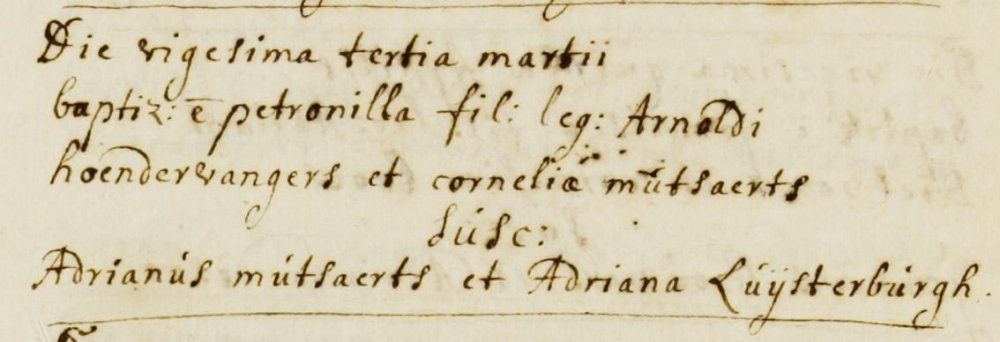 Die vigesima tertia martii
baptiz: ē petronilla fil: leg: Arnoldi
hoendervangers et corneliæ mutsaerts
susc:
Adrianús mútsaerts et Adriana Lúÿsterbúrgh.